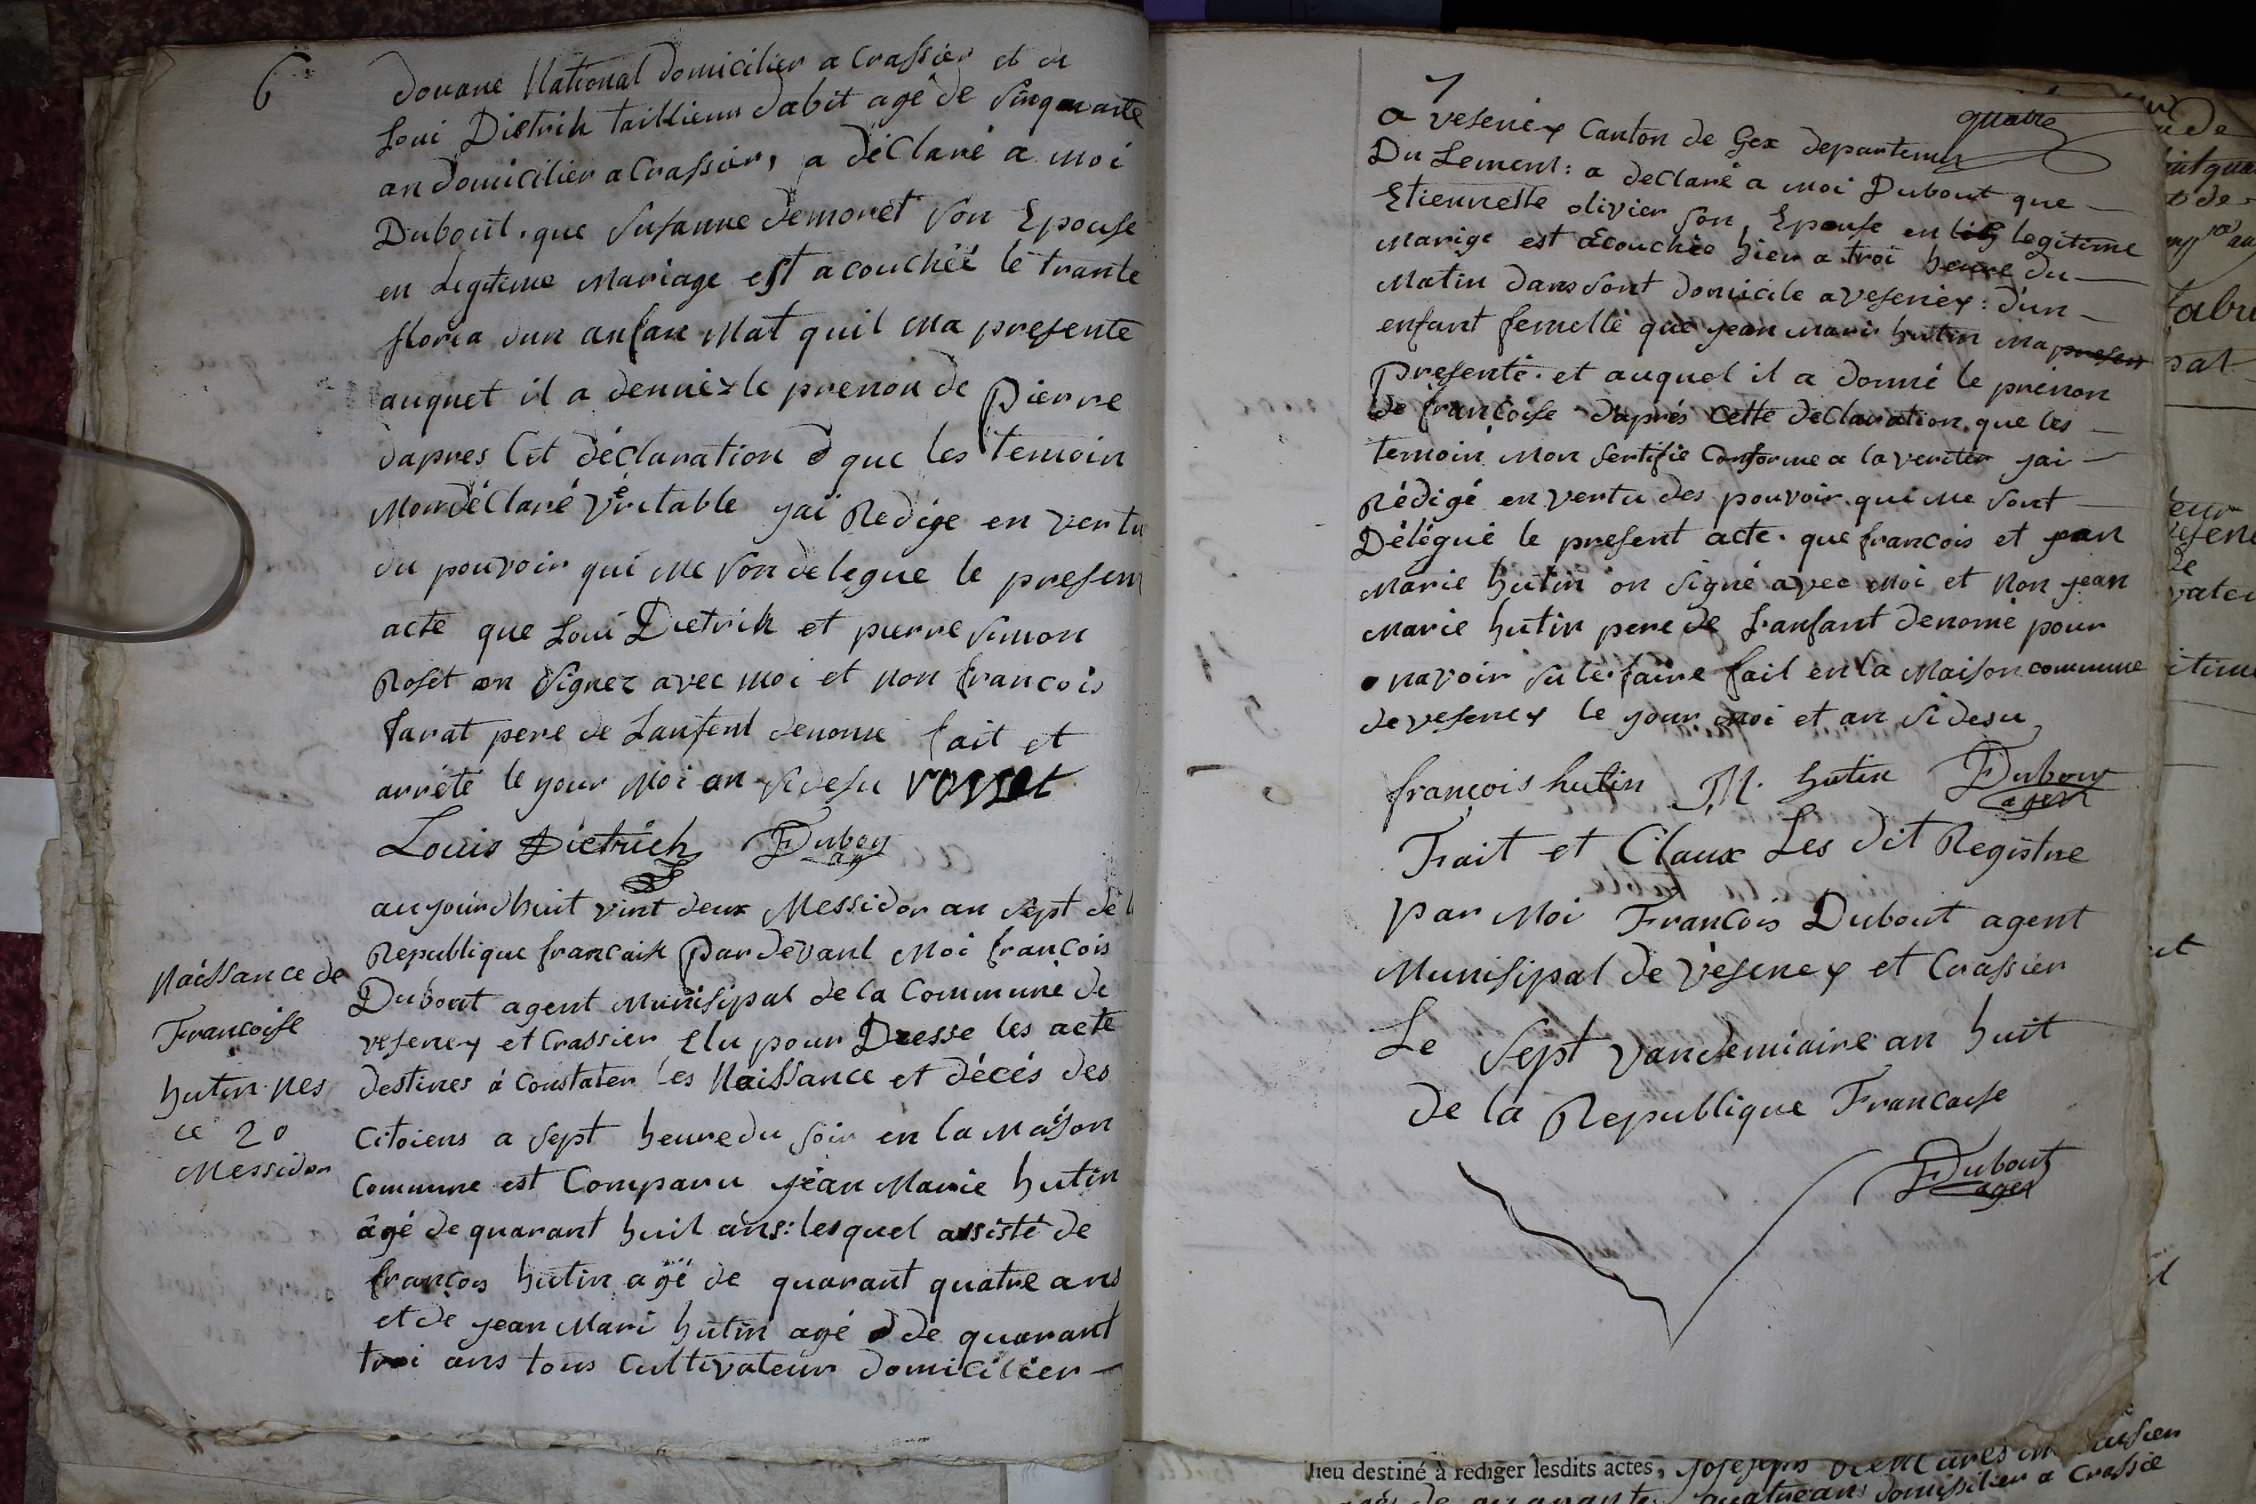 6
Douane National Domicilier a Crassier et de
Loui Dietrik taillieur dabit agé de sinquante
an domicilier a Crassier, a déClaré a moi
Dubout. que Susanne Demoret son Epouse
en Legitime Mariage est acouchéé le trante
floria dun anfan Mal quil ma presente
auquel il a donnéz le prenon de Pierre
dapres Cet déclaration que les temoin
Mon déClaré véritable jai Redige en vertu
du pouvoir qui me son delegue le presen
acte que Loui Dietrik et pierre simon
Roset on signez avec moi et non francois
farat pere de Lanfent denome fait et
arrété le jour Moi an si desu rosset
Louis Dietrich Dubou
ag
Naissance de
Francoise
hutin nes
ce 20
Messidor
aujourdhuit vint deux Messidor an sept de l
Republique francaise Pardevant Moi francois
Dubout agent Munisipal de la Commune de
vesenex et Crassier Elu pour Dresse les acte
destines á Constater les Naissance et décés des
Citoiens a sept heure du soir en la maison
Commune est Comparu jean Marie hutin
âgé de quarant huit ans: lesquel assisté de
françois hutin agé de quarant quatre ans
et de jean Mari hutin agé de quarant
troi ans tous Cultivateur domicilier —
7
quatre
a vesenex Canton de Gex departemen
Du Lement: a declaré a moi Dubout que —
Etiennette olivier son Epouse en legitime
Marige est acouchée hier a troi heure du —
Matin dans sont domicile a vesenex: d'un —
enfant femelle que jean mari hutin ma presen
Presenté. et auquel il a donné le prénon
de françoise d'aprés Cette declaration, que les —
temoin mon sertifié Conforme a la veriter jai —
Rédigé en vertu des pouvoir qui me sont —
Délégué le present acte. que francois et jean
Marie hutin on signé avec moi et non jean
marie hutin pere de lanfant denomé pour
navoir su le faire fait en la Maison commune
de vesenex le jour moi et an si desu
françois hutin J M. hutin Dubout
agent
Fait et Claux Les dit Registre
par Moi Francois Dubout agent
Munisipal de Vesenex et Crassier
Le sept vandemiaire an huit
de la Republique Francaise
Dubout
agen
lieu destiné à rédiger lesdits actes, joseph
quatre ans domisilier a Crassie